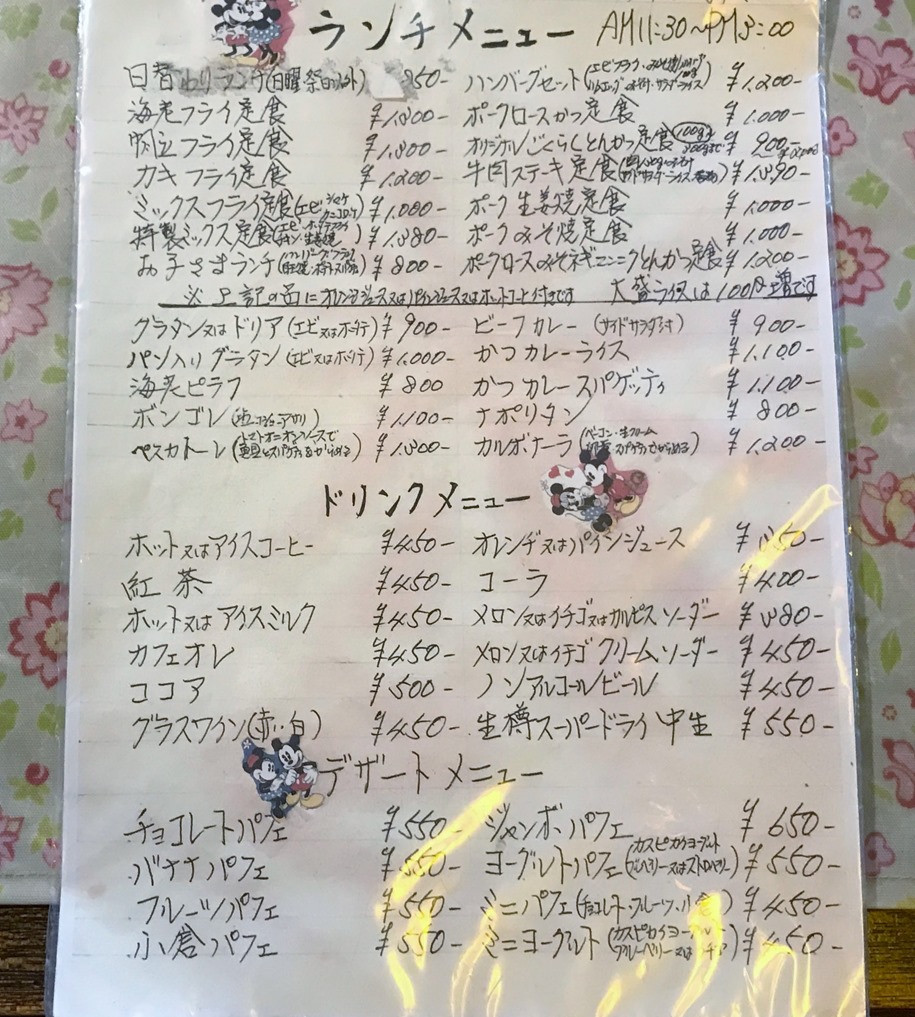 ランチメニュー AM11:30〜PM3:00
日替わりランチ(日曜祭日以外) 850-
海老フライ定食 ¥1,300-
帆立フライ定食 ¥1,300-
カキフライ定食 ¥1,200-
ミックスフライ定食 ¥1,000-
特製ミックス定食 ¥1,380-
お子さまランチ ¥800-
ハンバーグセット ¥1,200-
ポークロースかつ定食 ¥1,000-
オリジナルごくらくとんかつ定食 ¥900-
牛肉ステーキ定食 ¥1,390-
ポーク生姜焼定食 ¥1,000-
ポークみそ焼定食 ¥1,000-
ポークロースのみそネギニンニクとんかつ定食 ¥1,200-
※上記の品にオレンジジュース又はパインジュース又はホットコーヒー付きです 大盛ライスは100円増です
グラタン又はドリア(エビ又はホタテ) ¥900-
パン入りグラタン(エビ又はホタテ) ¥1,000-
海老ピラフ ¥800
ボンゴレ ¥1,100-
ペスカトーレ ¥1,300-
ビーフカレー(サイドサラダ付) ¥900-
かつカレーライス ¥1,100-
かつカレースパゲッティ ¥1,100-
ナポリタン ¥800-
カルボナーラ ¥1,200-
ドリンクメニュー
ホット又はアイスコーヒー ¥450-
紅茶 ¥450-
ホット又はアイスミルク ¥450-
カフェオレ ¥450-
ココア ¥500-
グラスワイン(赤・白) ¥450-
オレンヂ又はパインジュース ¥350-
コーラ ¥400-
メロン又はイチゴ又はカルピスソーダー ¥380-
メロン又はイチゴクリームソーダー ¥450-
ノンアルコールビール ¥450-
生樽スーパードライ中生 ¥550-
デザートメニュー
チョコレートパフェ ¥550-
バナナパフェ ¥550-
フルーツパフェ ¥550-
小倉パフェ ¥550-
ジャンボパフェ ¥650-
ヨーグルトパフェ(カスピカイヨーグルト ブルーベリー又はストロベリー) ¥550-
ミニパフェ(チョコレート・フルーツ・小倉) ¥450-
ミニヨーグルト ¥450-